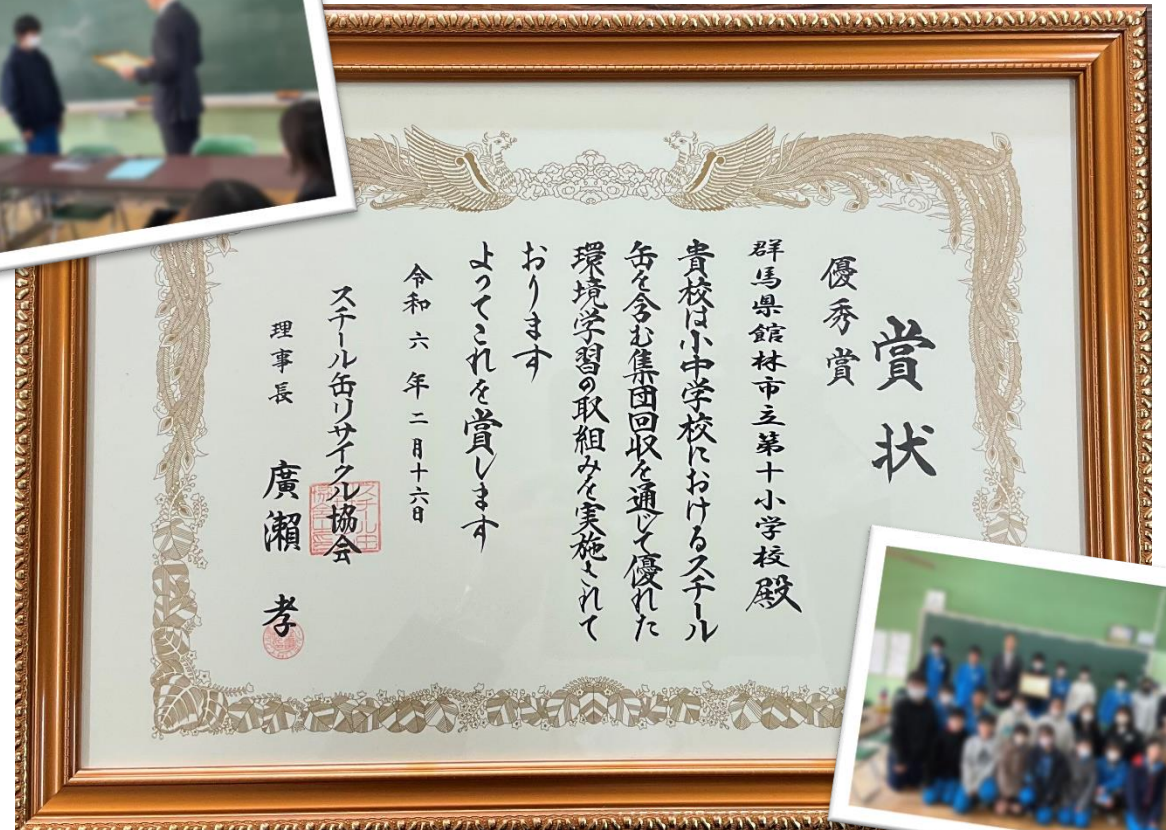 賞状
優秀賞
群馬県館林市立第十小学校殿
貴校は小中学校におけるスチール
缶を含む集団回収を通じて優れた
環境学習の取組みを実施されて
おります
よってこれを賞します
令和六年二月十六日
スチール缶リサイクル協会
理事長 廣瀬 孝